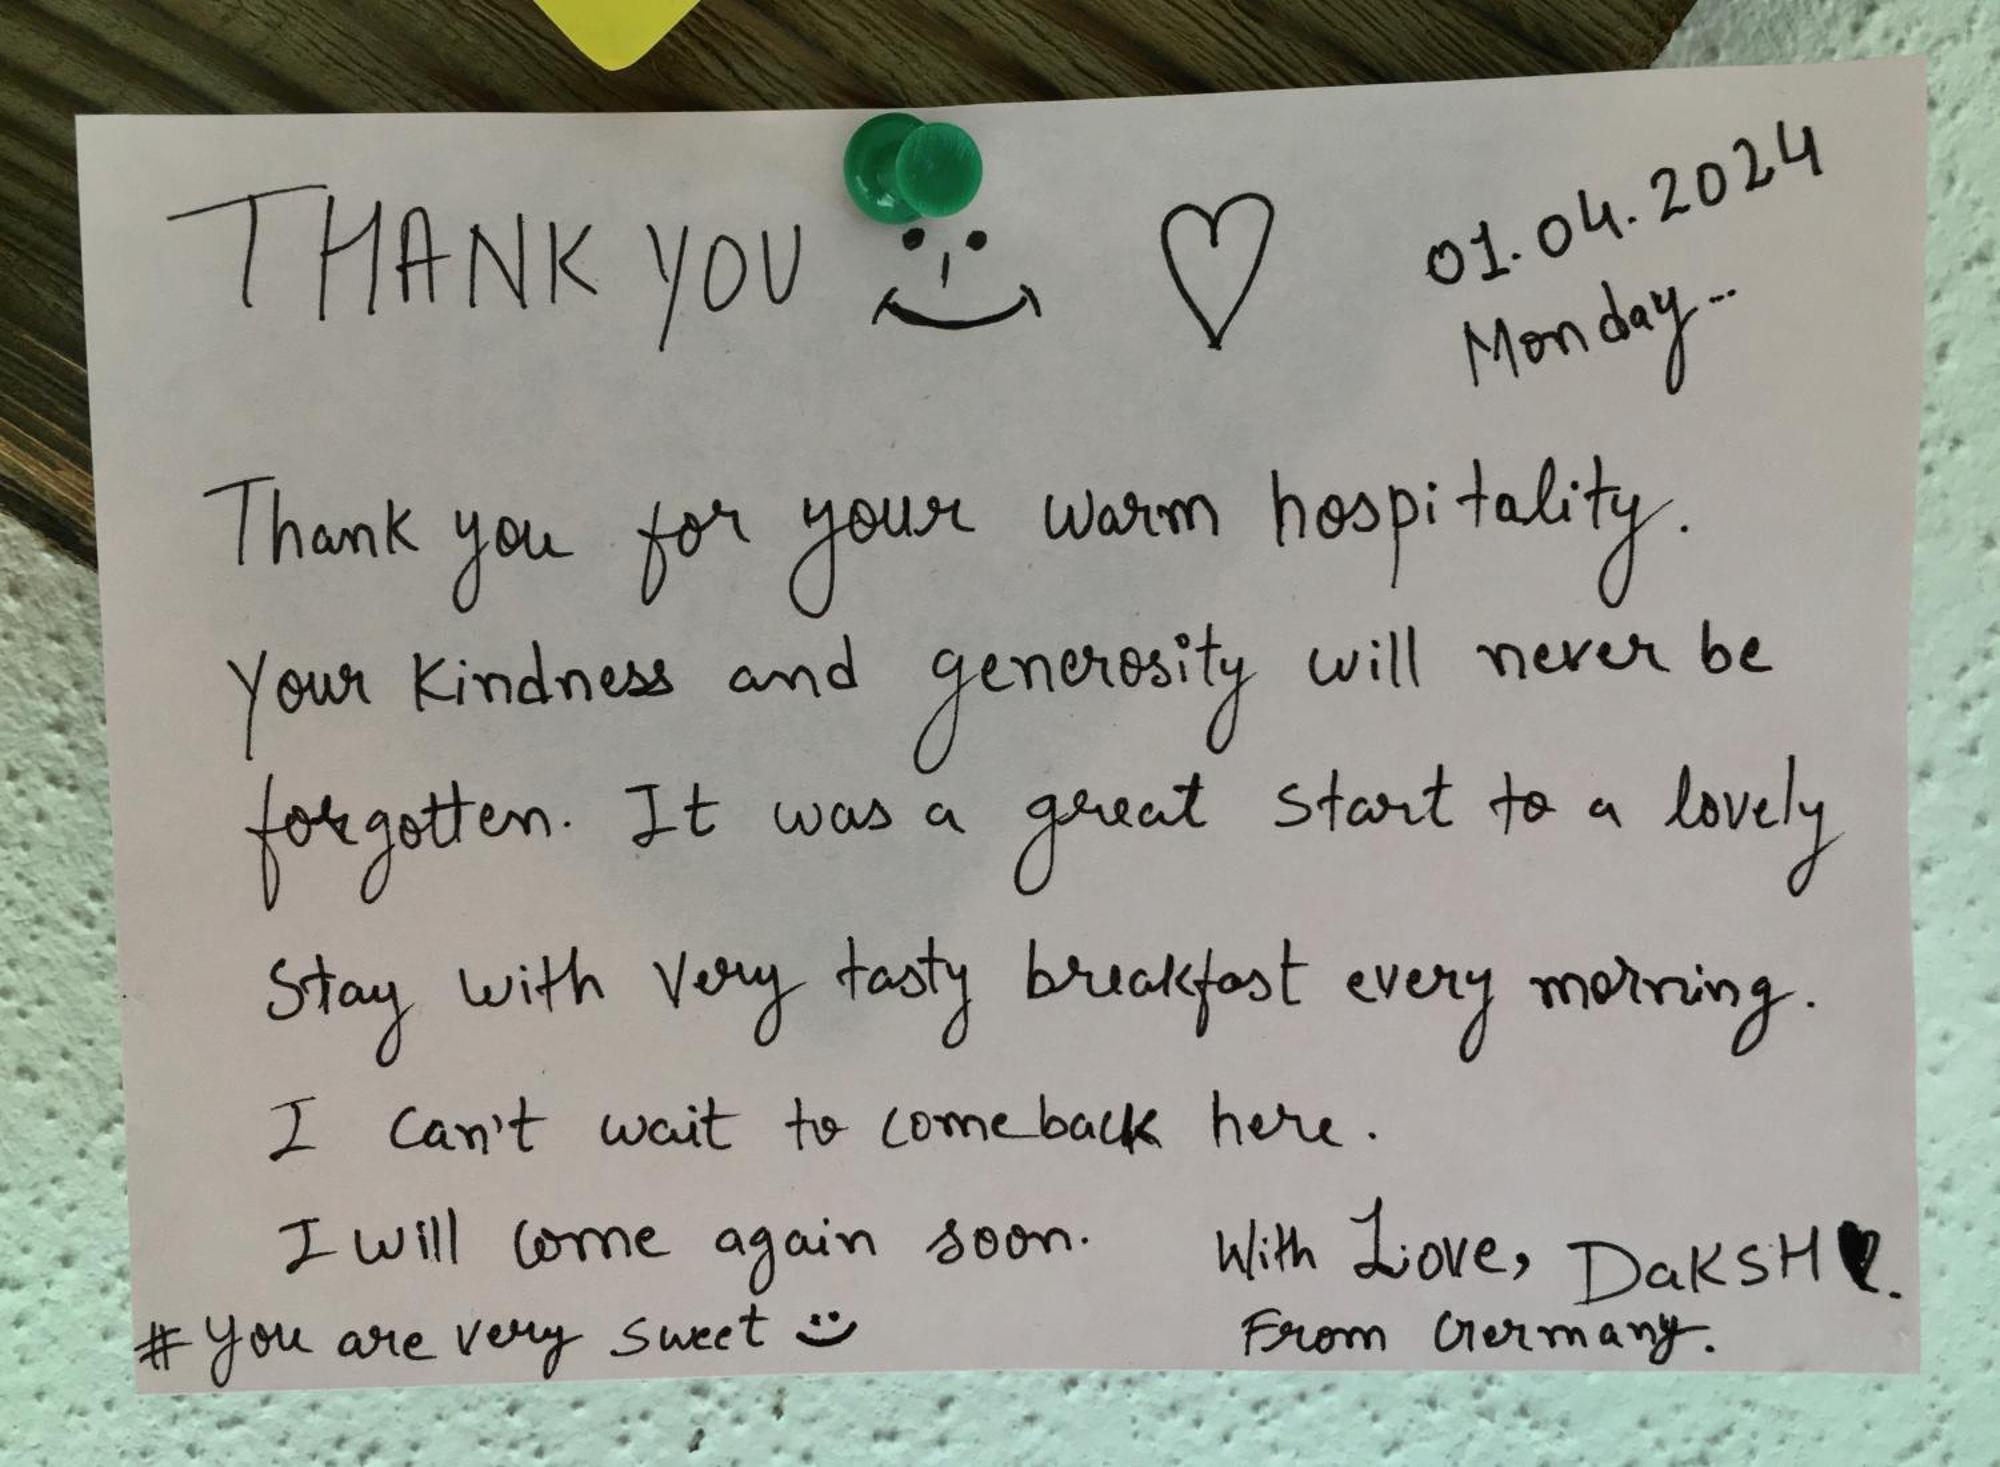 THANK YOU
01.04.2024
Monday...
Thank you for your warm hospitality.
Your kindness and generosity will never be
forgotten. It was a great start to a lovely
Stay with Very tasty breakfast every morning.
I can't wait to come back here.
I will come again soon.
With Love, DaKSH.
From Germany.
# You are very sweet